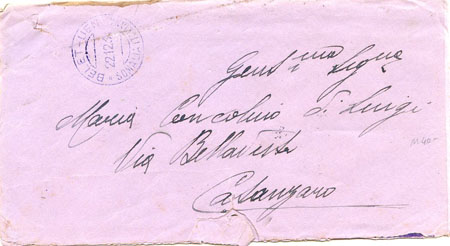 BELET UEN
22.12.3
Gent.ma Sig.na
Maria Concolino di Luigi
Via Bellavista
Catanzaro